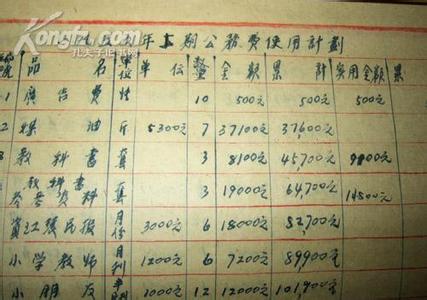 Kongfz.com
孔夫子旧书网
年上期公務費使用計劃
品名 單位 單价 數量 金额 累計 实用金额 累
1 廣告費 10 500元 500元 500元
2 煤油 斤 5300元 7 37100元 37,600元
3 教科書 套 3 8100元 45,700元 9800元
教科書
参考资料 套 3 19000元 64,700元 14800元
資江農民报 月份 3000元 6 18000元 82,700元
小学教师 月刊 1200元 6 7200元 89,900元
小朋友 半月刊 1000元 12 12000元 101,900元